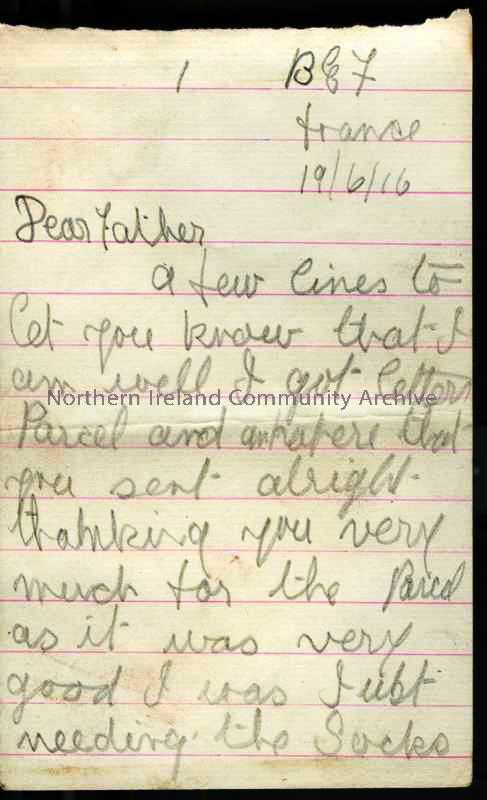 1 BEF
France
19/6/16
Dear Father
a few lines to
let you know that I
am well I got letters
Northern Ireland Community Archive
Parcel and that
you sent alright
thanking you very
much for the Parcel
as it was very
good I was Just
needing the Socks